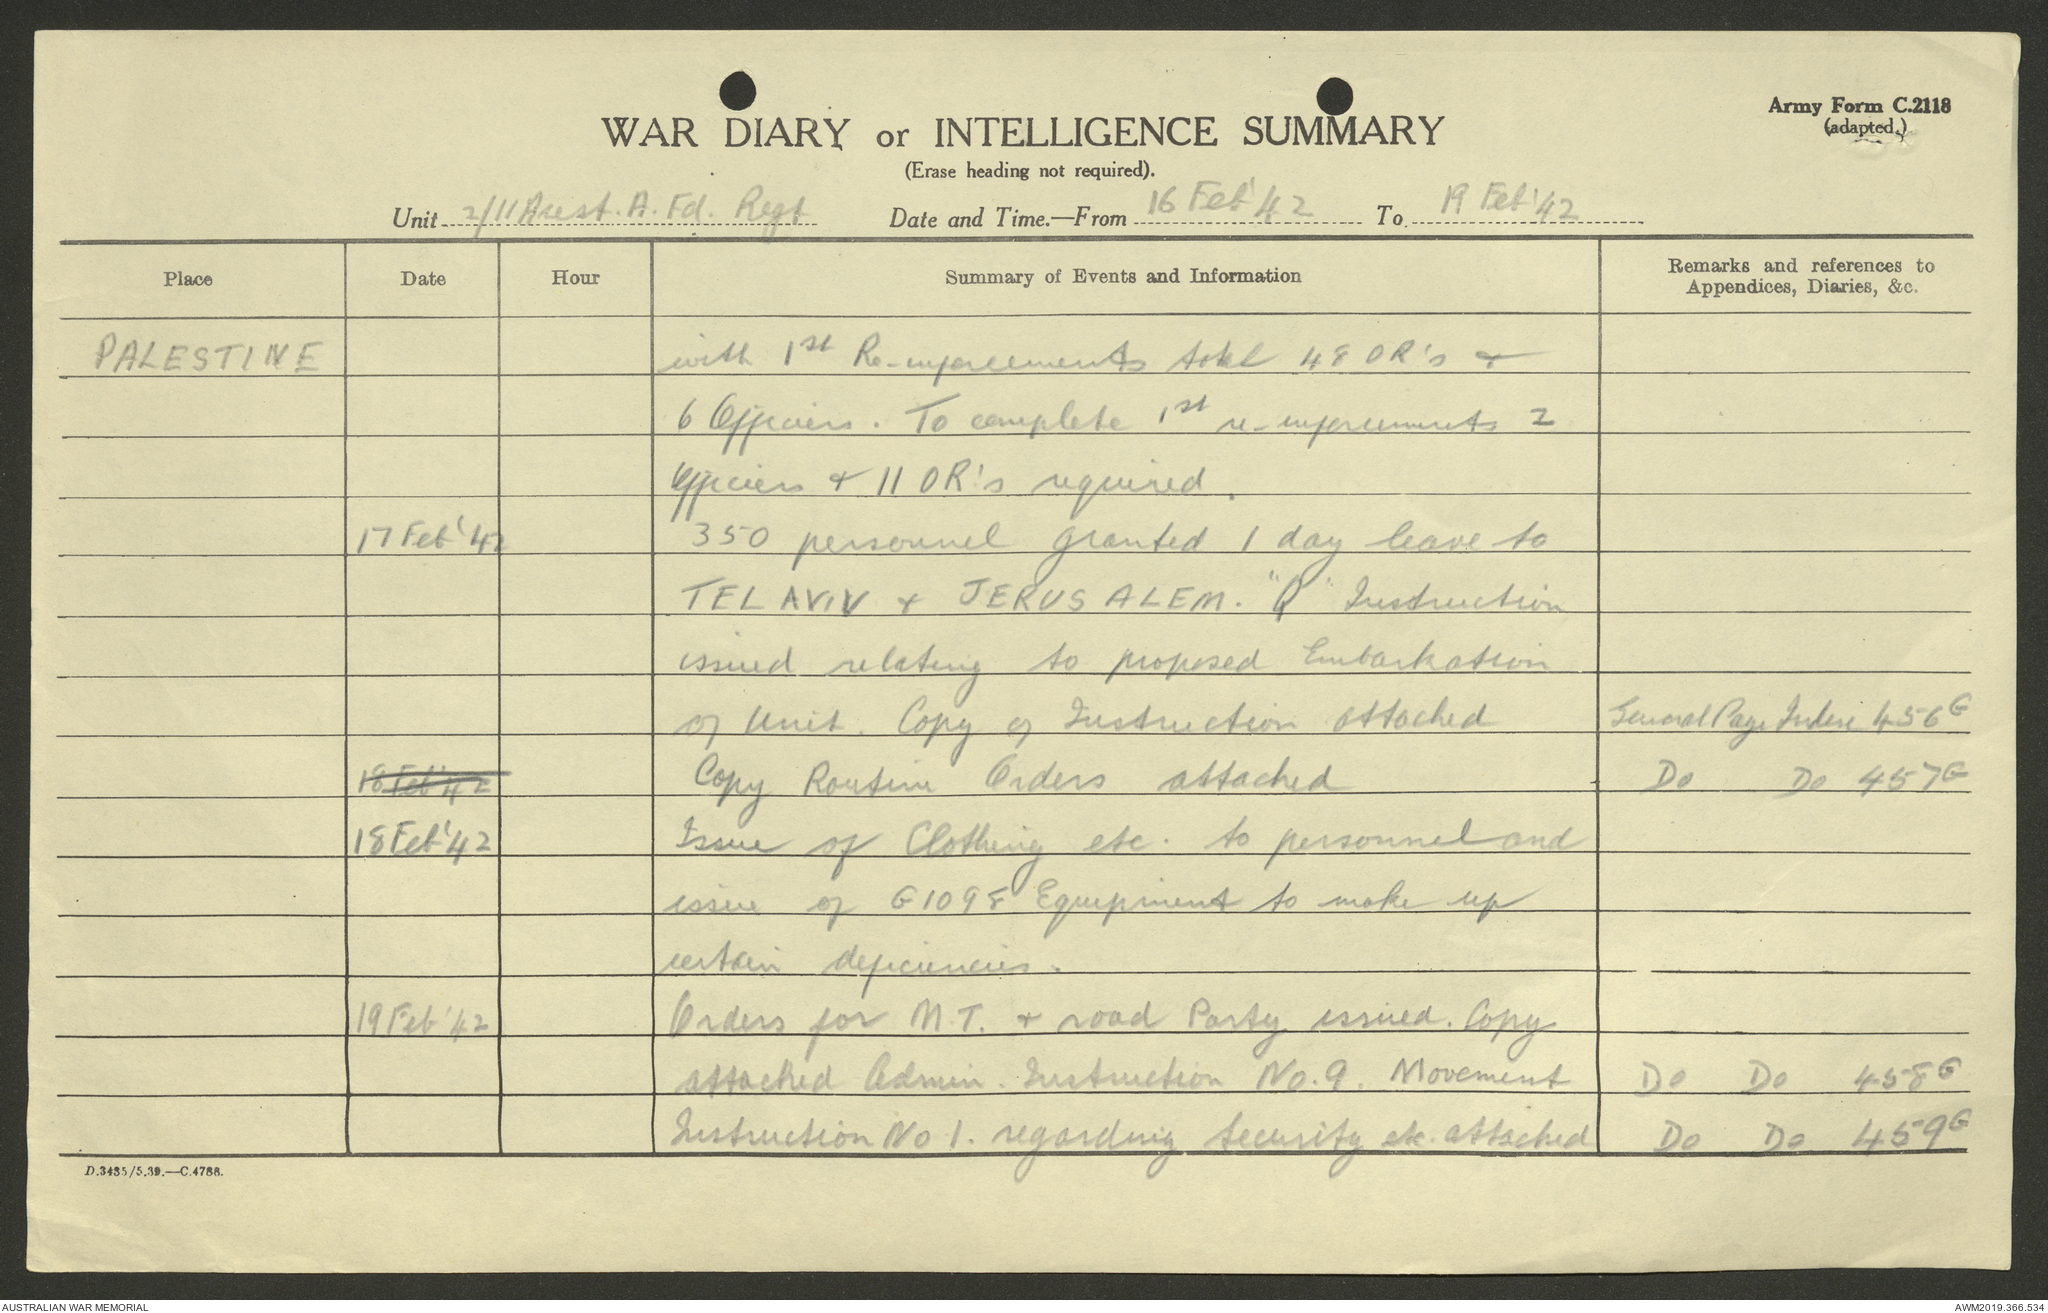 Army Form C.2118
(adapted.)
WAR DIARY or INTELLIGENCE SUMMARY
(Erase heading not required).
Unit 2/11 Aust. A. Fd. Regt Date and Time.—From 16 Feb '42 To 19 Feb '42
Place Date Hour Summary of Events and Information Remarks and references to
Appendices, Diaries, &c.
PALESTINE with 1st Re-inforcements total 48 OR's &
6 Officers. To complete 1st re-inforcements 2
Officers & 11 OR's required.
17 Feb '42 350 personnel granted 1 day leave to
TEL AVIV & JERUSALEM. "Q" Instruction
issued relating to proposed Embarkation
of Unit. Copy of Instruction attached General Page Index 456G
18 Feb '42 Copy Routine Orders attached Do Do 457G
18 Feb '42 Issue of Clothing etc. to personnel and
issue of G1098 Equipment to make up
certain deficiencies.
19 Feb '42 Orders for M.T. & road Party issued. Copy
attached Admin. Instruction No. 9. Movement Do Do 458G
Instruction No 1. regarding Security etc. attached Do Do 459G
D.3435/5.39.—C.4788.
AUSTRALIAN WAR MEMORIAL AWM2019.366.534